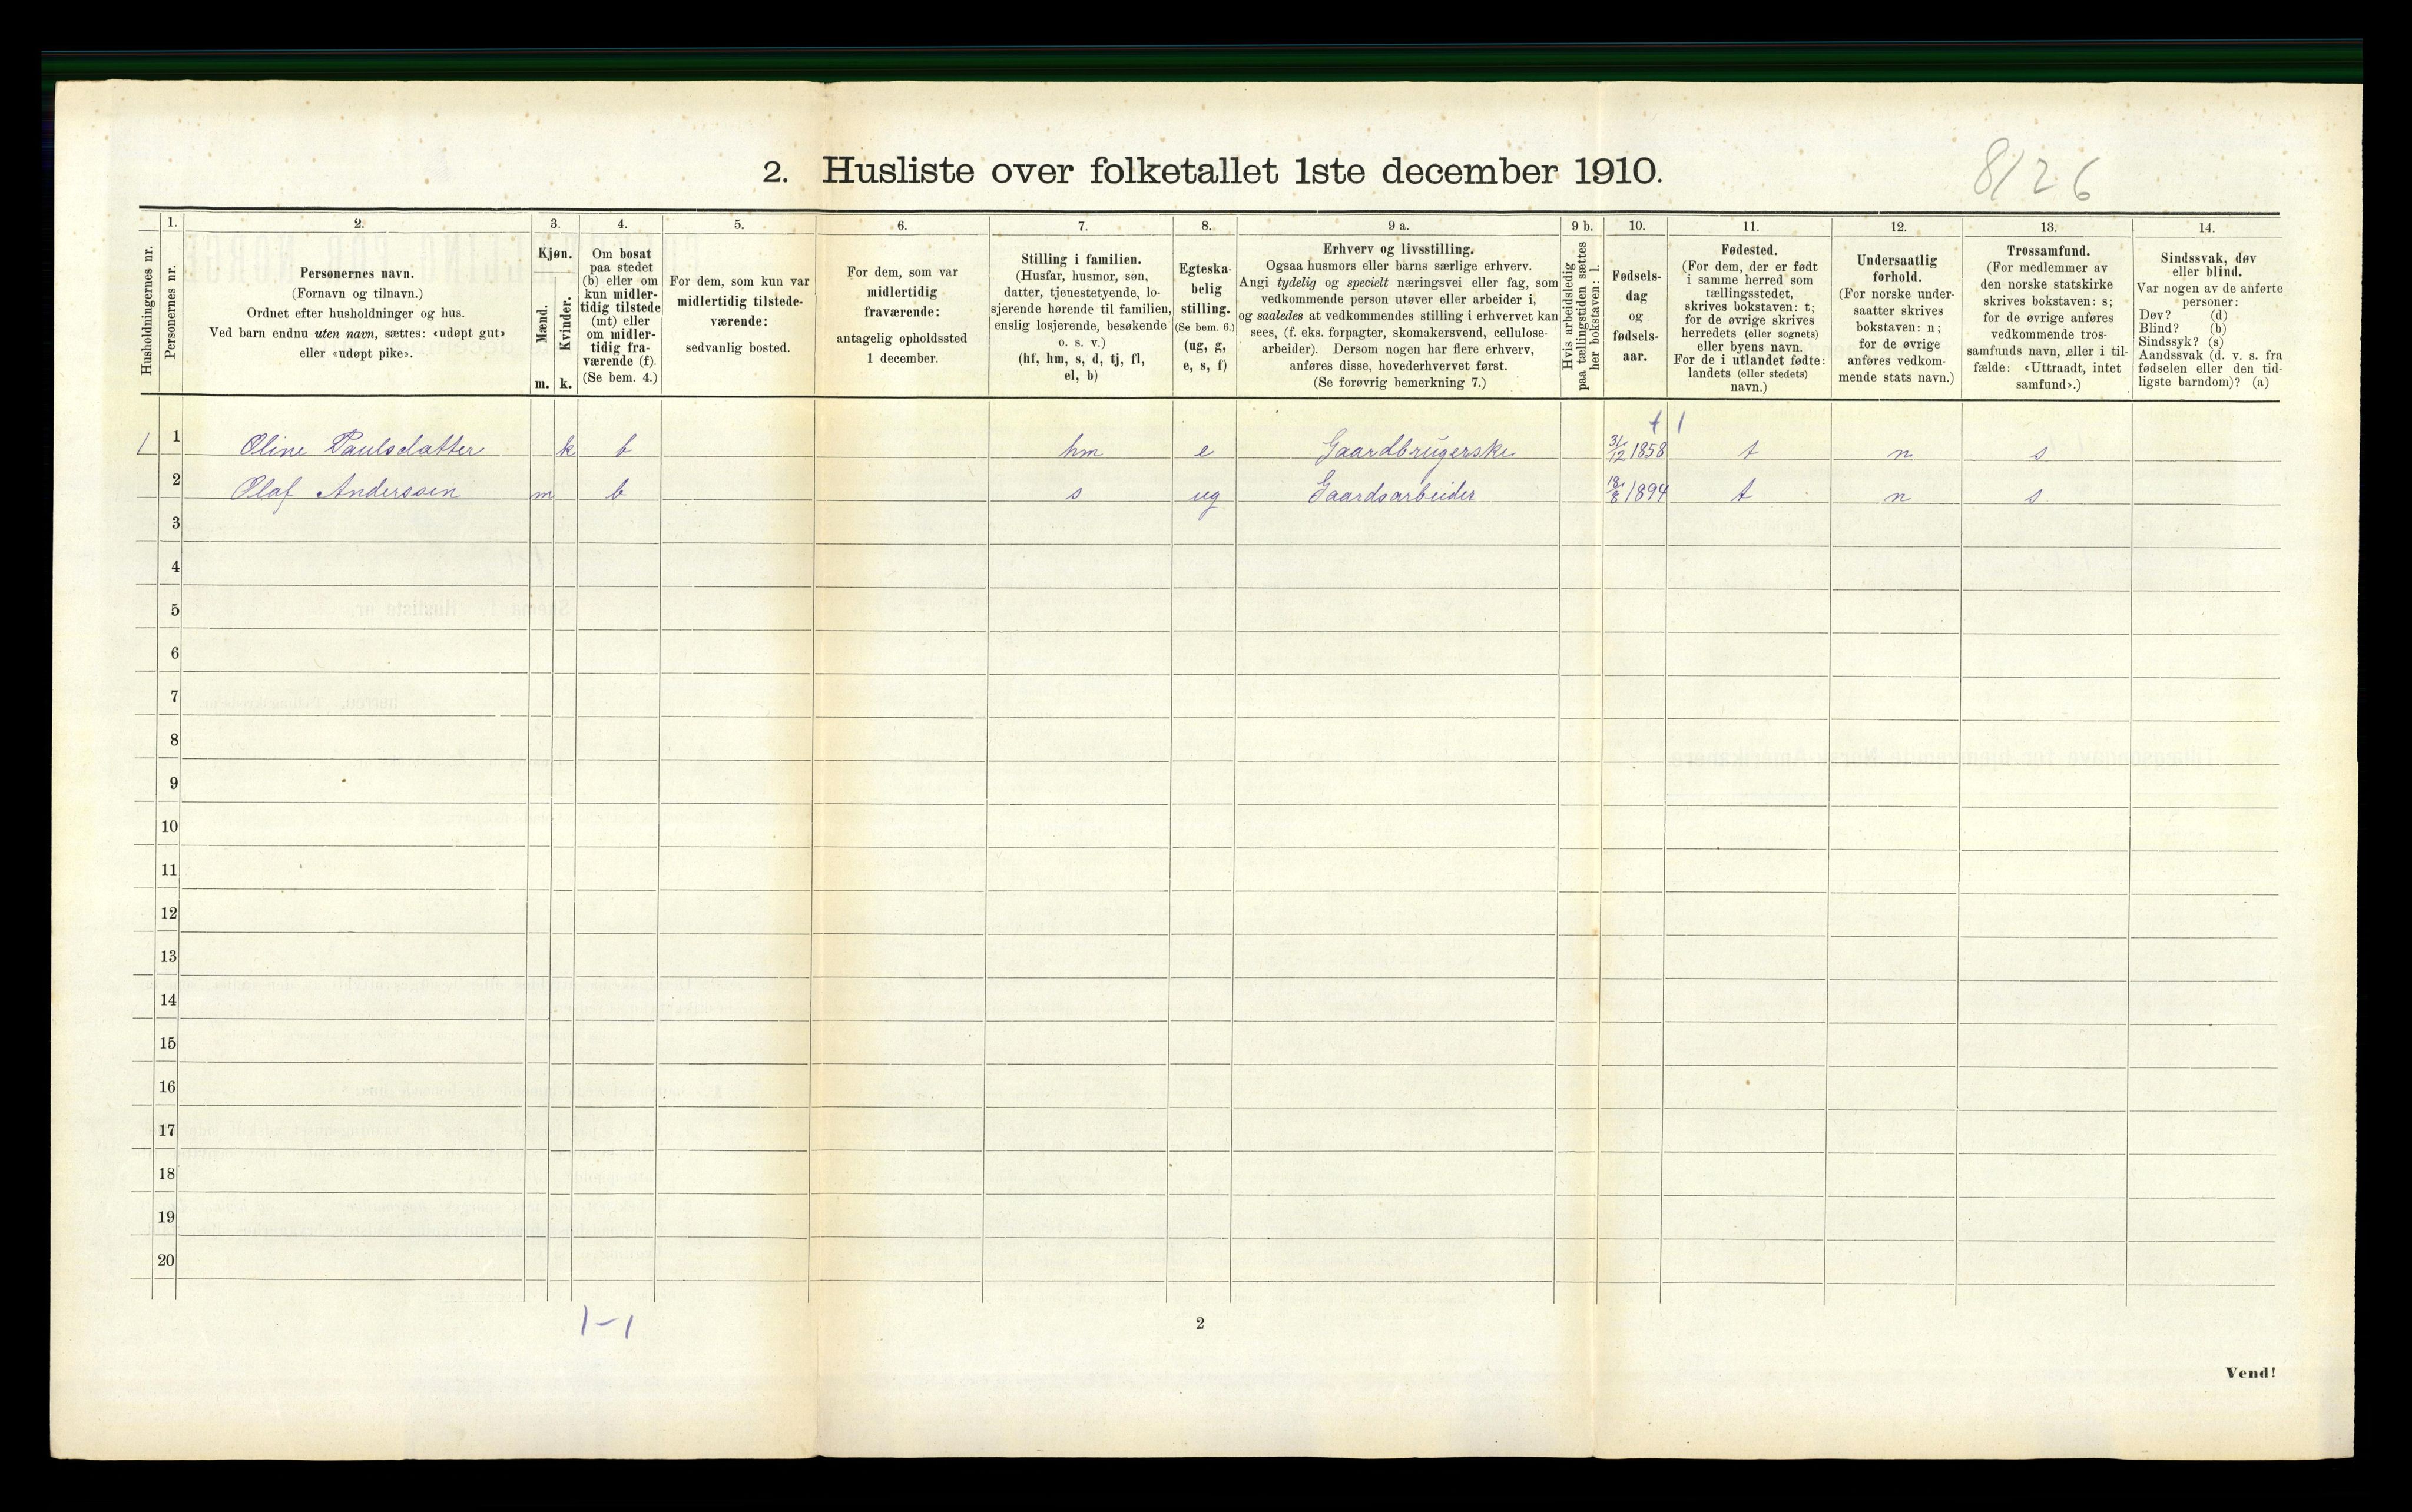 8126
2. Husliste over folketallet 1ste december 1910.
Husholdningernes nr.
1.
Personernes nr.
2.
Personernes navn.
(Fornavn og tilnavn.)
Ordnet efter husholdninger og hus.
Ved barn endnu uten navn, sættes: «udøpt gut»
eller «udøpt pike».
3.
Kjøn.
Mænd.
m.
Kvinder.
k.
4.
Om bosat
paa stedet
(b) eller om
kun midler-
tidig tilstede
(mt) eller
om midler-
tidig fra-
værende (f).
(Se bem. 4.)
5.
For dem, som kun var
midlertidig tilstede-
værende:
sedvanlig bosted.
6.
For dem, som var
midlertidig
fraværende:
antagelig opholdssted
1 december.
7.
Stilling i familien.
(Husfar, husmor, søn,
datter, tjenestetyende, lo-
sjerende hørende til familien,
enslig losjerende, besøkende
o. s. v.)
(hf, hm, s, d, tj, fl,
el, b)
8.
Egteska-
belig
stilling.
(Se bem. 6.)
(ug, g,
e, s, f)
9 a.
Erhverv og livsstilling.
Ogsaa husmors eller barns særlige erhverv.
Angi tydelig og specielt næringsvei eller fag, som
vedkommende person utøver eller arbeider i,
og saaledes at vedkommendes stilling i erhvervet kan
sees, (f. eks. forpagter, skomakersvend, cellulose-
arbeider). Dersom nogen har flere erhverv,
anføres disse, hovederhvervet først.
(Se forøvrig bemerkning 7.)
9 b.
Hvis arbeidsledig
paa tællingstiden sættes
her bokstaven: l.
10.
Fødsels-
dag
og
fødsels-
aar.
11.
Fødested.
(For dem, der er født
i samme herred som
tællingsstedet,
skrives bokstaven: t;
for de øvrige skrives
herredets (eller sognets)
eller byens navn.
For de i utlandet fødte:
landets (eller stedets)
navn.)
12.
Undersaatlig
forhold.
(For norske under-
saatter skrives
bokstaven: n;
for de øvrige
anføres vedkom-
mende stats navn.)
13.
Trossamfund.
(For medlemmer av
den norske statskirke
skrives bokstaven: s;
for de øvrige anføres
vedkommende tros-
samfunds navn, eller i til-
fælde: «Uttraadt, intet
samfund».)
14.
Sindssvak, døv
eller blind.
Var nogen av de anførte
personer:
Døv? (d)
Blind? (b)
Sindssyk? (s)
Aandssvak (d. v. s. fra
fødselen eller den tid-
ligste barndom)? (a)
1 1 Oline Paulsdatter k b hm e Gaardbrugerske 31/12 1858 t n s
2 Olaf Anderssen m b s ug Gaardsarbeider 18/8 1894 t n s
3
4
5
6
7
8
9
10
11
12
13
14
15
16
17
18
19
20
1-1
2
Vend!